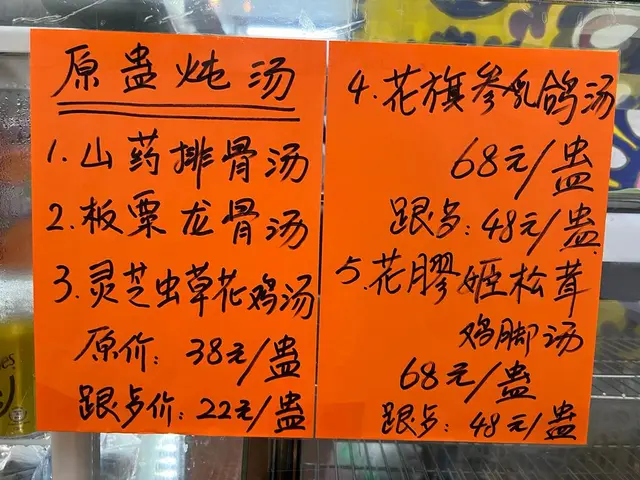 原蛊炖汤
1.山药排骨汤
2.板粟龙骨汤
3.灵芝虫草花鸡汤
原价：38元/蛊
跟点价：22元/蛊
4.花旗参乳鸽汤
68元/蛊
跟点：48元/蛊
5.花膠姬松茸
鸡脚汤
68元/蛊
跟点：48元/蛊